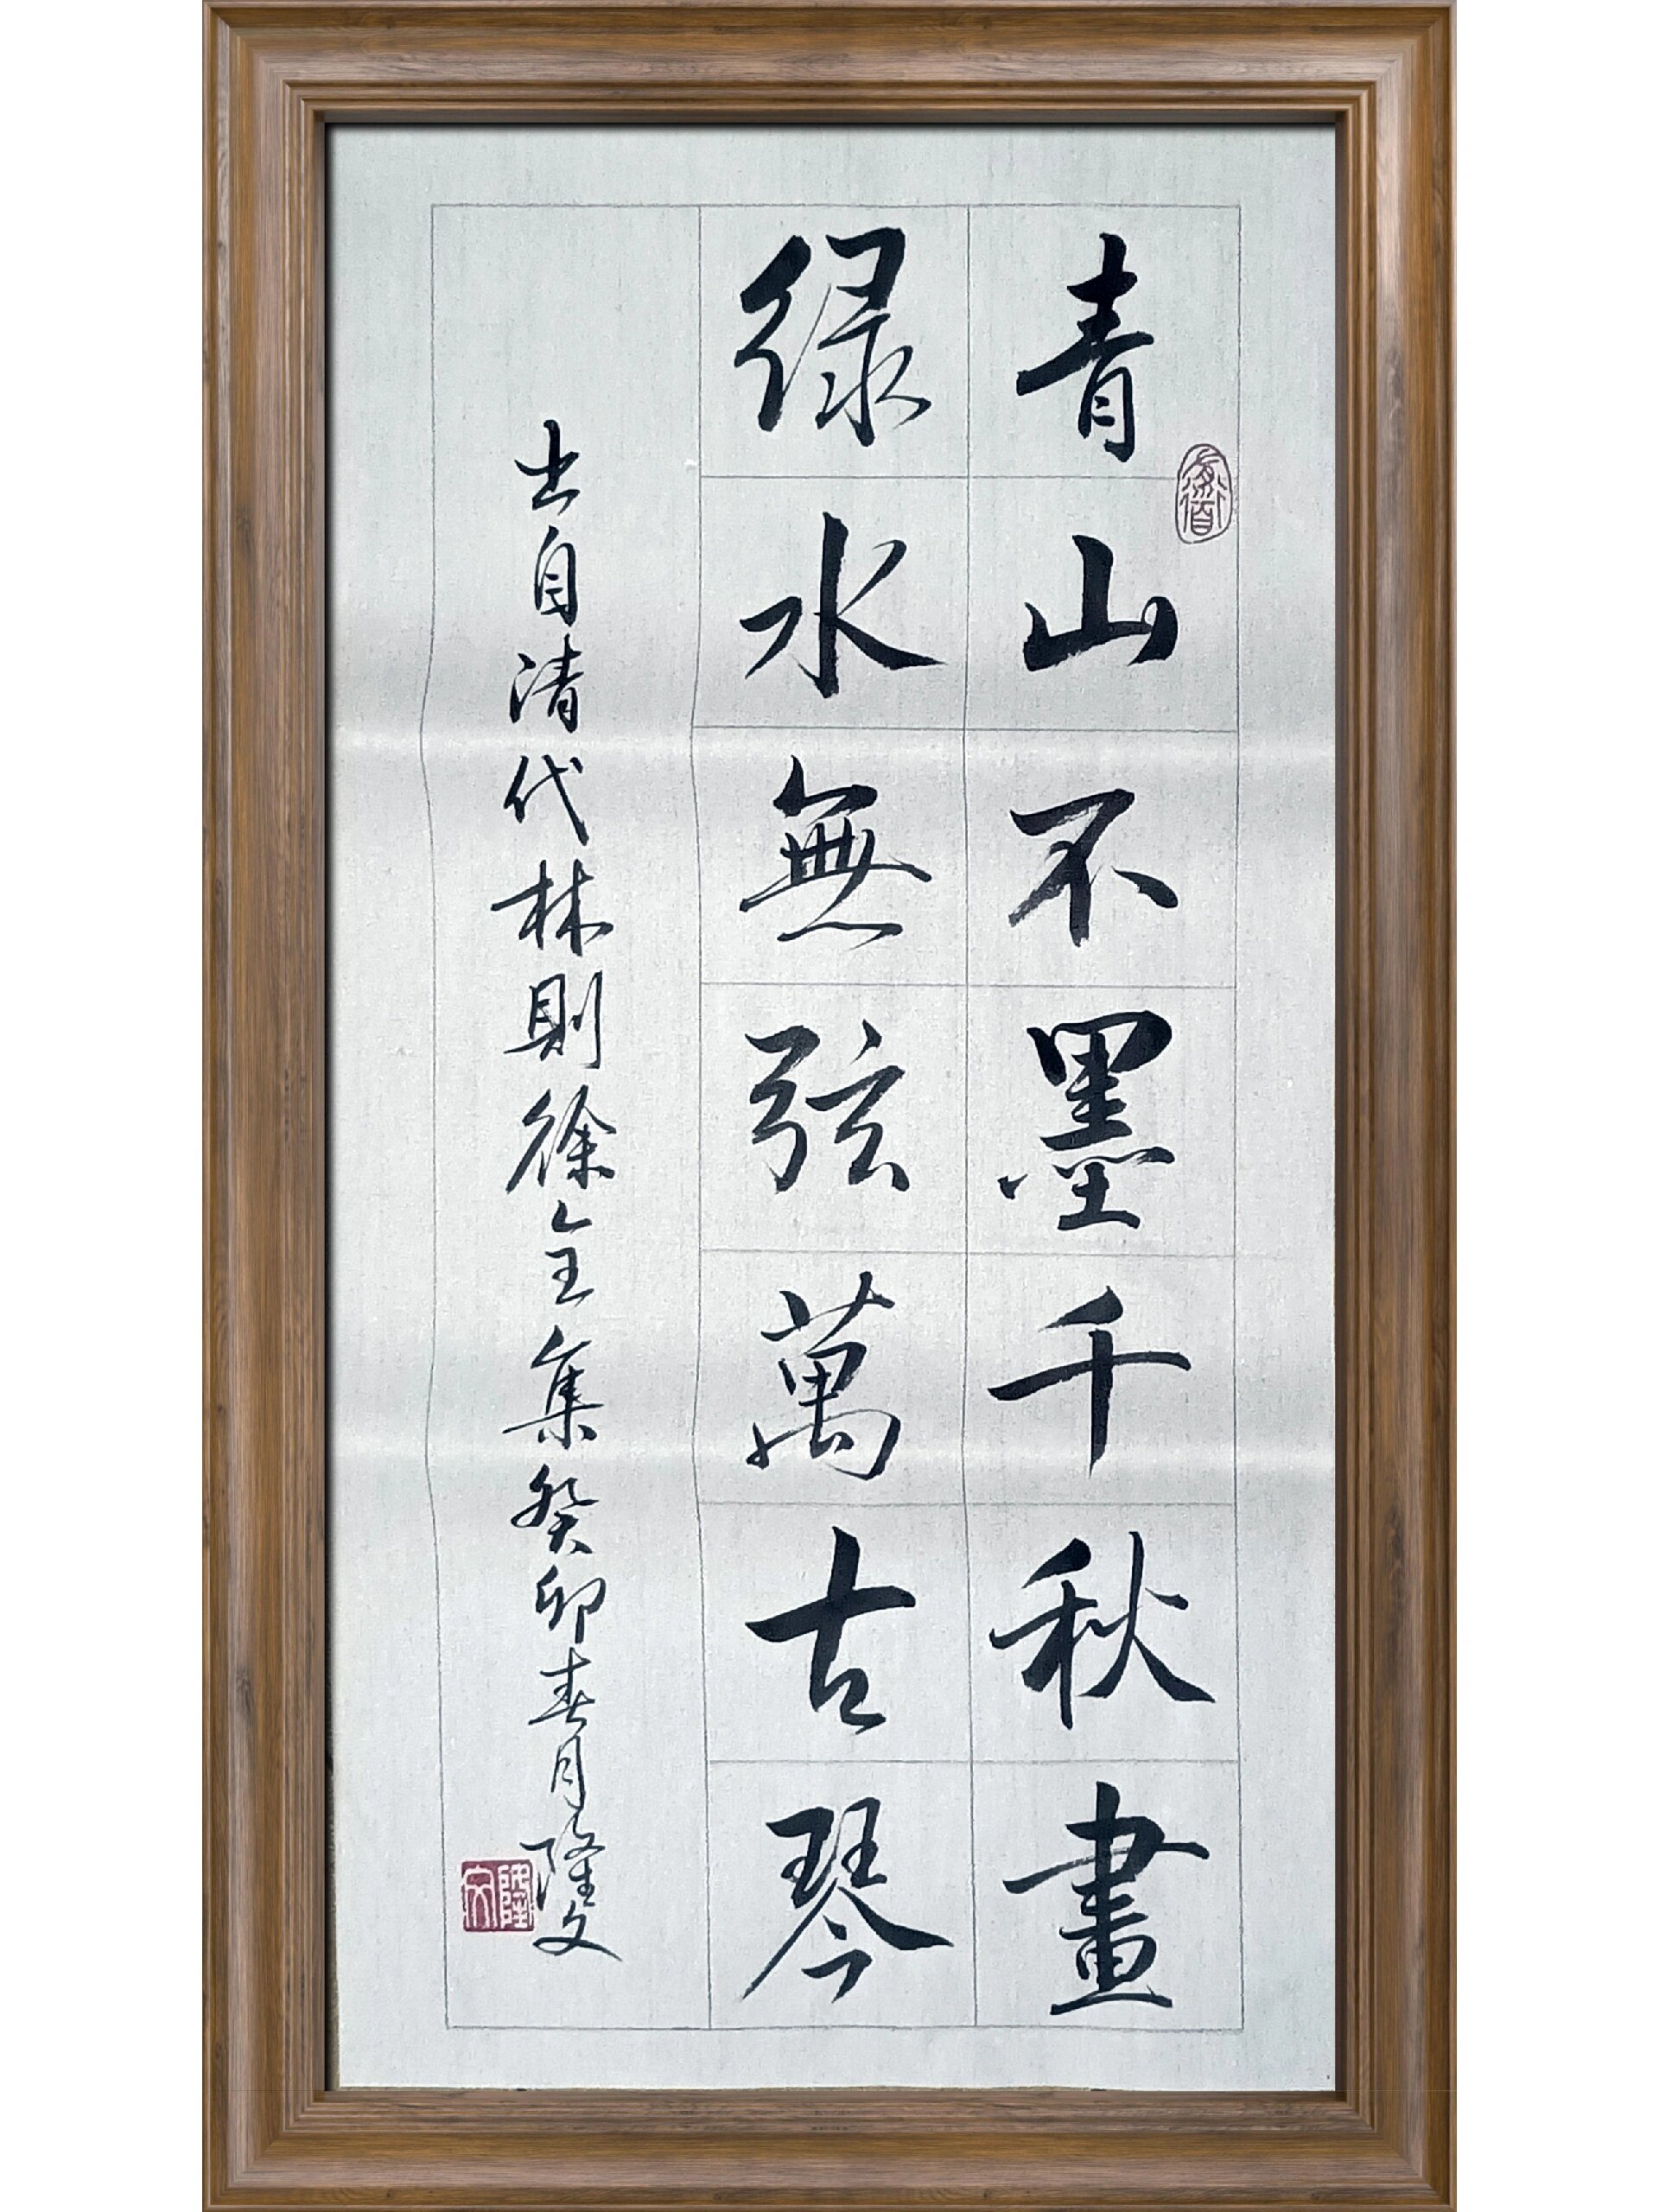 青山不墨千秋畫
绿水無弦萬古琴
出自清代林則徐全集癸卯春月隆文
隆文